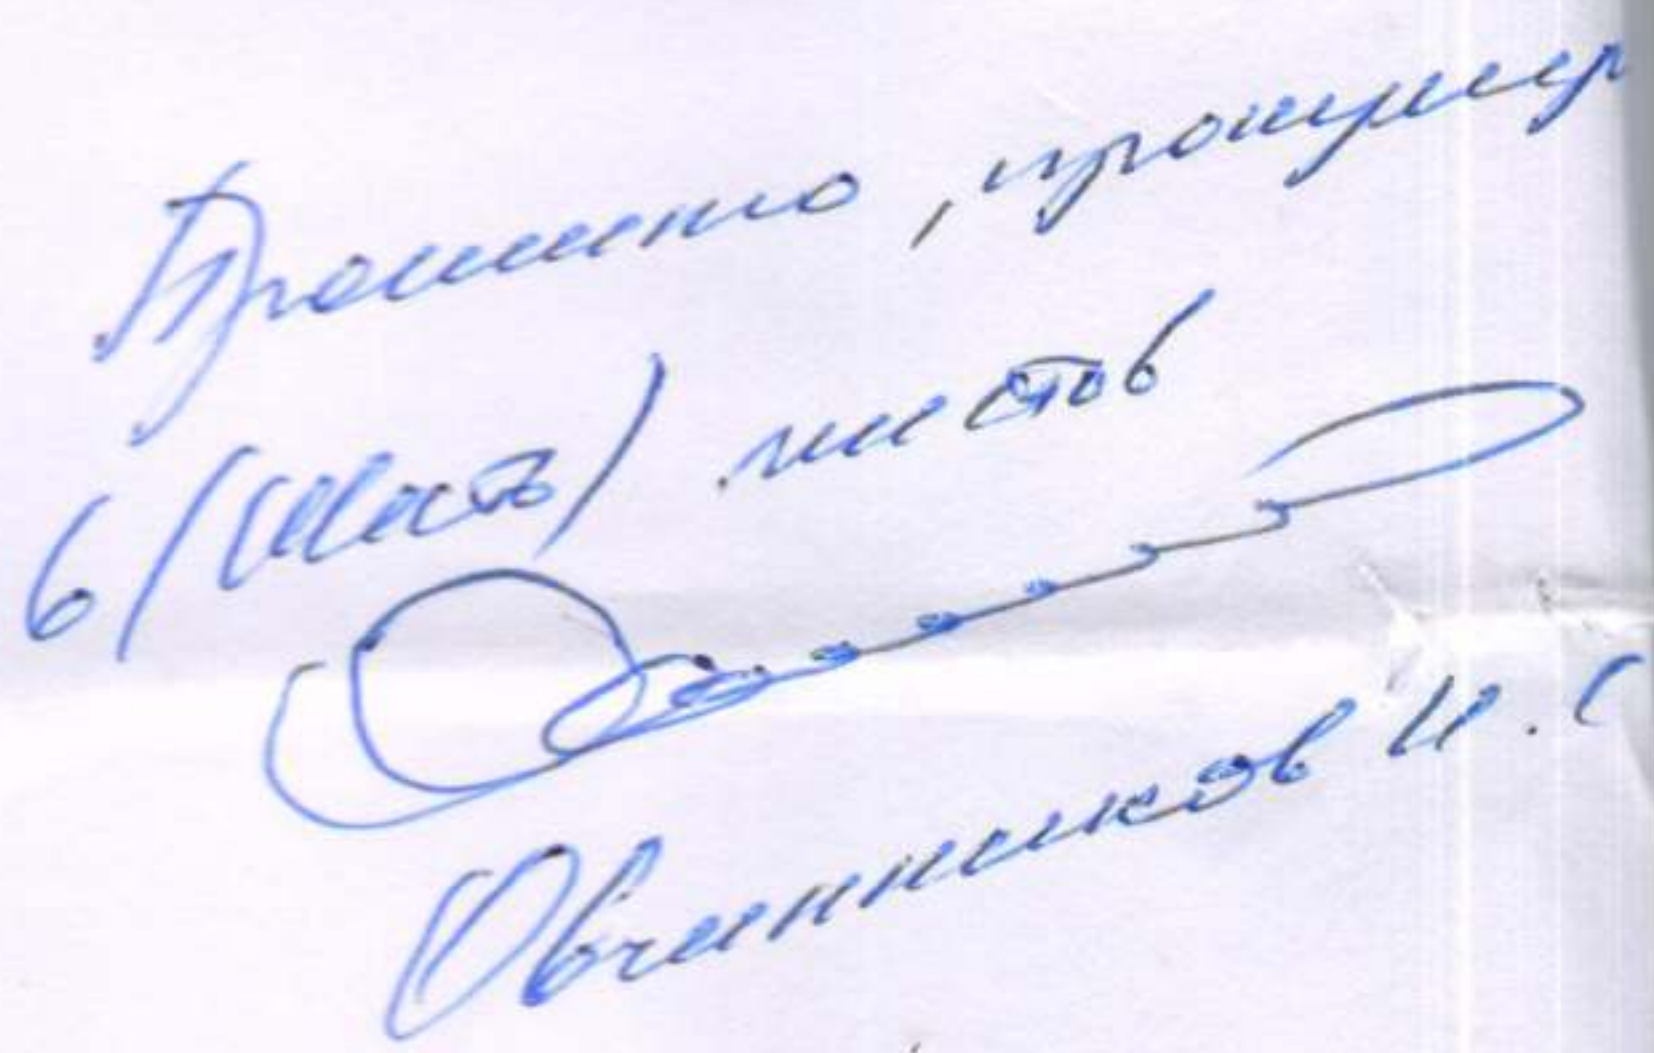 Прошито, пронумер
6 (шесть) листов
Овчинников И. С